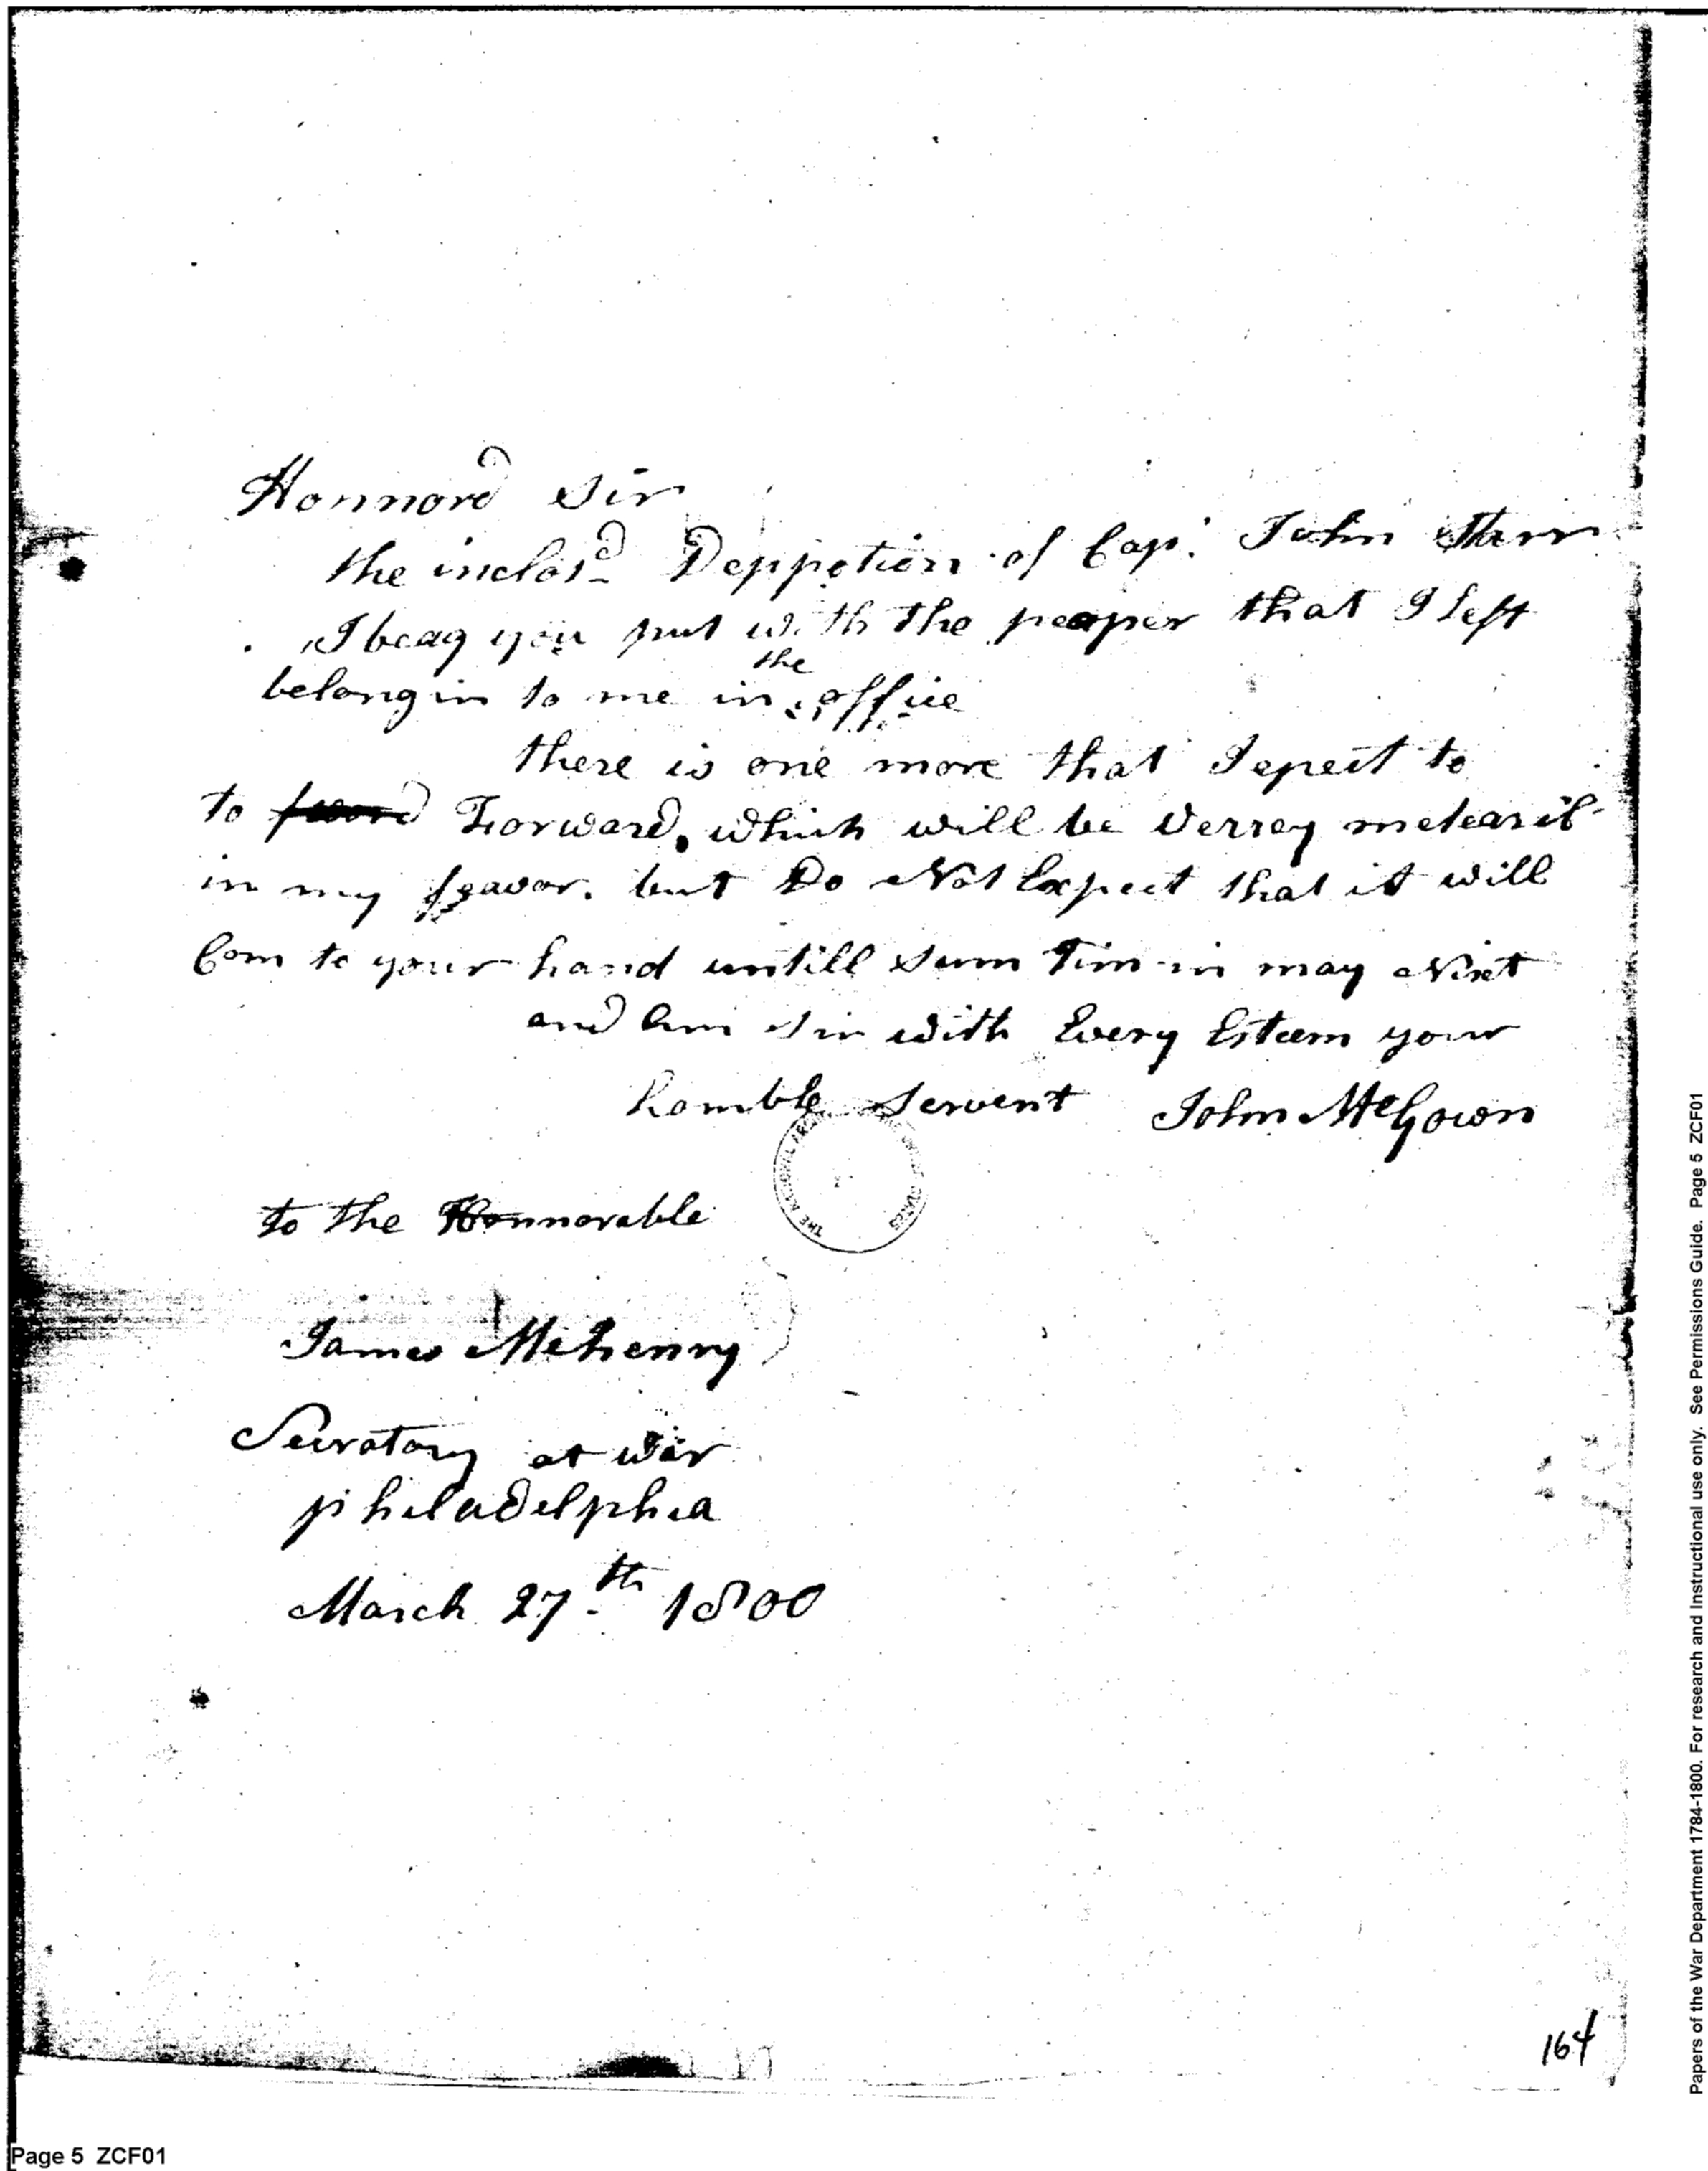 Honnord Sir
the inclosd Deppotion of Cap. John Starr
I beag you put with the peaper that I left
the
belongin to me in office
there is one more that I epect to
to Forward, which will be verrey metearil
in my feavor. but Do Not Expect that it will
Com to your hand untill sum Tim in may Nixt
and Am Sir with Every Esteem your
homble Servent John McGown
to the Honnorable
James McHenry
Secratary at war
philadelphia
March 27th 1800
164
Page 5 ZCF01
Papers of the War Department 1784-1800. For research and instructional use only. See Permissions Guide. Page 5 ZCF01